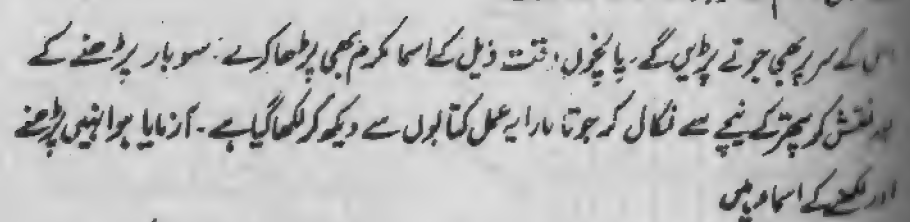 اس کے سر پر بھی جوتے پڑیں گے۔ پانچوں وقت ذیل کے اسما مکرم بھی پڑھا کرے۔ سو بار پڑھنے کے
بعد نقش کو پتھر کے نیچے سے نکال کر جوتا مارا یہ عمل کتابوں سے دیکھ کر لکھا گیا ہے۔ آزمایا ہوا نہیں پڑھنے
اور لکھنے کے اسماء یہ ہیں